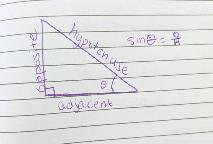 opposite
hypotenuse
sinθ = o/H
θ
adjacent